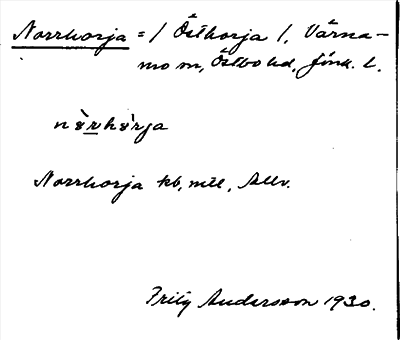 Norrhorja = / Östhorja /, Värna-
mo sn, Östbo hd, Jönk. l.
nòrhòrja
Norrhorja kb, mtl, Allv.
Fritz Andersson 1930.